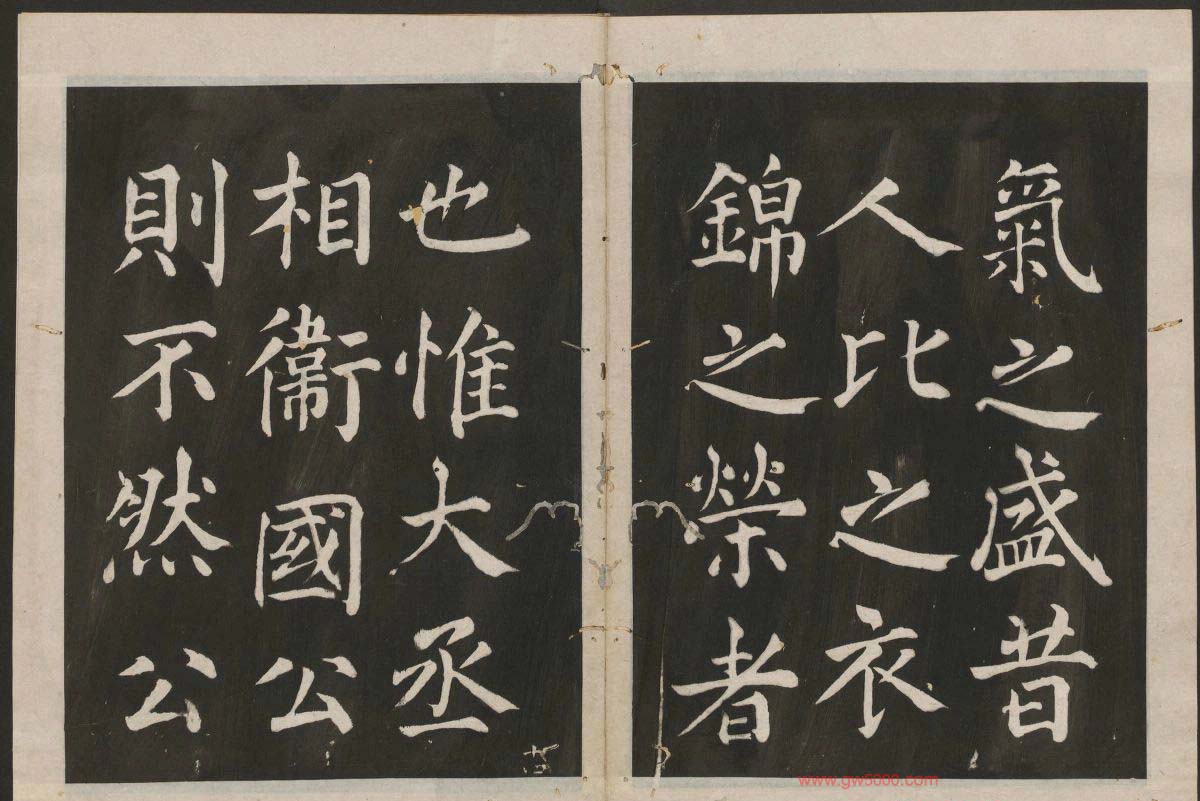 氣之盛昔
人比之衣
錦之榮者
也惟大丞
相衞國公
則不然公
www.gw5000.com